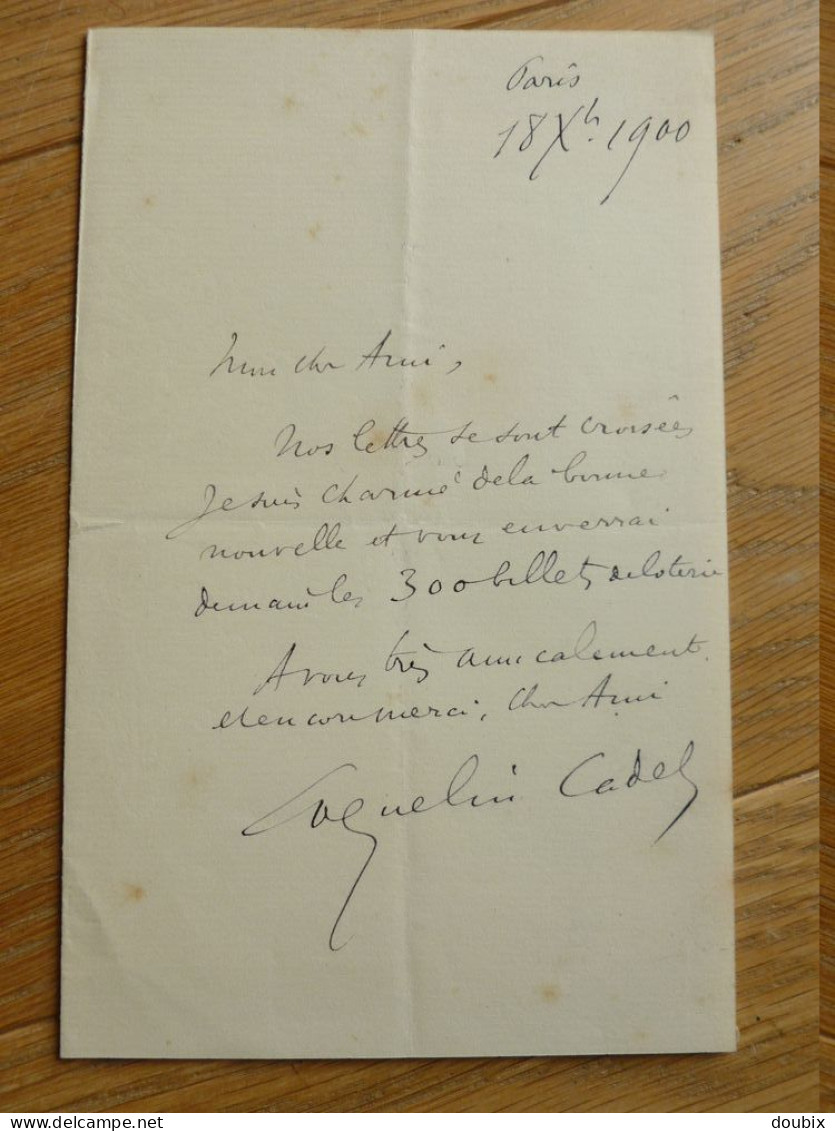 Paris
18 Xbr. 1900
Mon cher Ami,
Nos lettres se sont croisées
Je suis charmé de la bonne
nouvelle et vous enverrai
demain les 300 billets de loterie
A vous très amicalement
et encore merci, cher Ami
Coquelin Cadet
delcampe.net
doubix